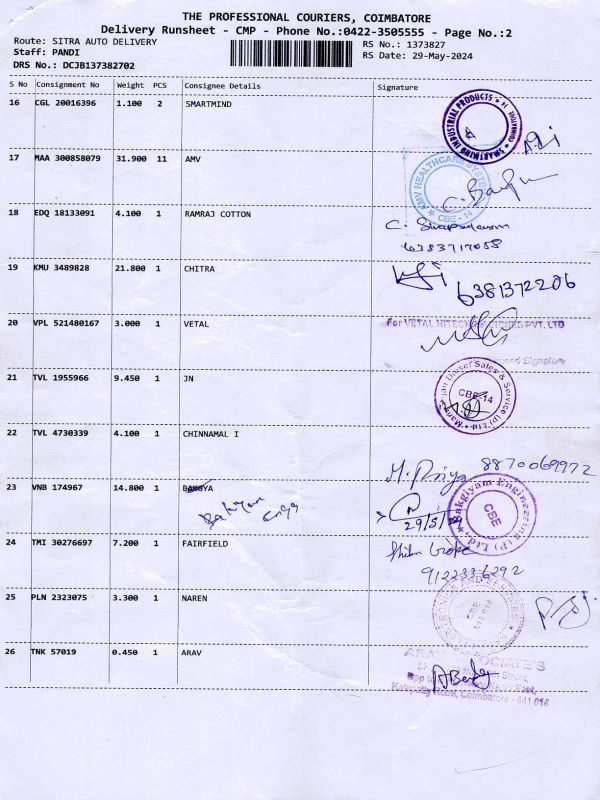 THE PROFESSIONAL COURIERS, COIMBATORE
Delivery Runsheet - CMP - Phone No.:0422-3505555 - Page No.:2
Route: SITRA AUTO DELIVERY
RS No.: 1373827
Staff: PANDI
RS Date: 29-May-2024
DRS No.: DCJB137382702
S No Consignment No Weight PCS Consignee Details Signature
16 CGL 20016396 1.100 2 SMARTMIND
SMARTMIND INDUSTRIAL PRODUCTS
17 MAA 300858079 31.900 11 AMV
AMV HEALTHCARE SYSTEM
CBE - 14
18 EDQ 18133091 4.100 1 RAMRAJ COTTON
C.
6383717058
19 KMU 3489828 21.800 1 CHITRA
6381372206
20 VPL 521480167 3.000 1 VETAL
For VETAL HITECH PVT. LTD
Signature
21 TVL 1955966 9.450 1 JN
Diesel Sales & Service (P) Ltd.
CBE-14
22 TVL 4730339 4.100 1 CHINNAMAL I
M. Priya 8870069972
23 VNB 174967 14.800 1 BAKGYA
Bakiyam Engg
29/5/24
Bakgiyam Engineering (P) Ltd.
CBE
24 TMI 30276697 7.200 1 FAIRFIELD
9122336292
25 PLN 2323075 3.300 1 NAREN
CBE
26 TNK 57019 0.450 1 ARAV
Street,
Road, Coimbatore - 641 014